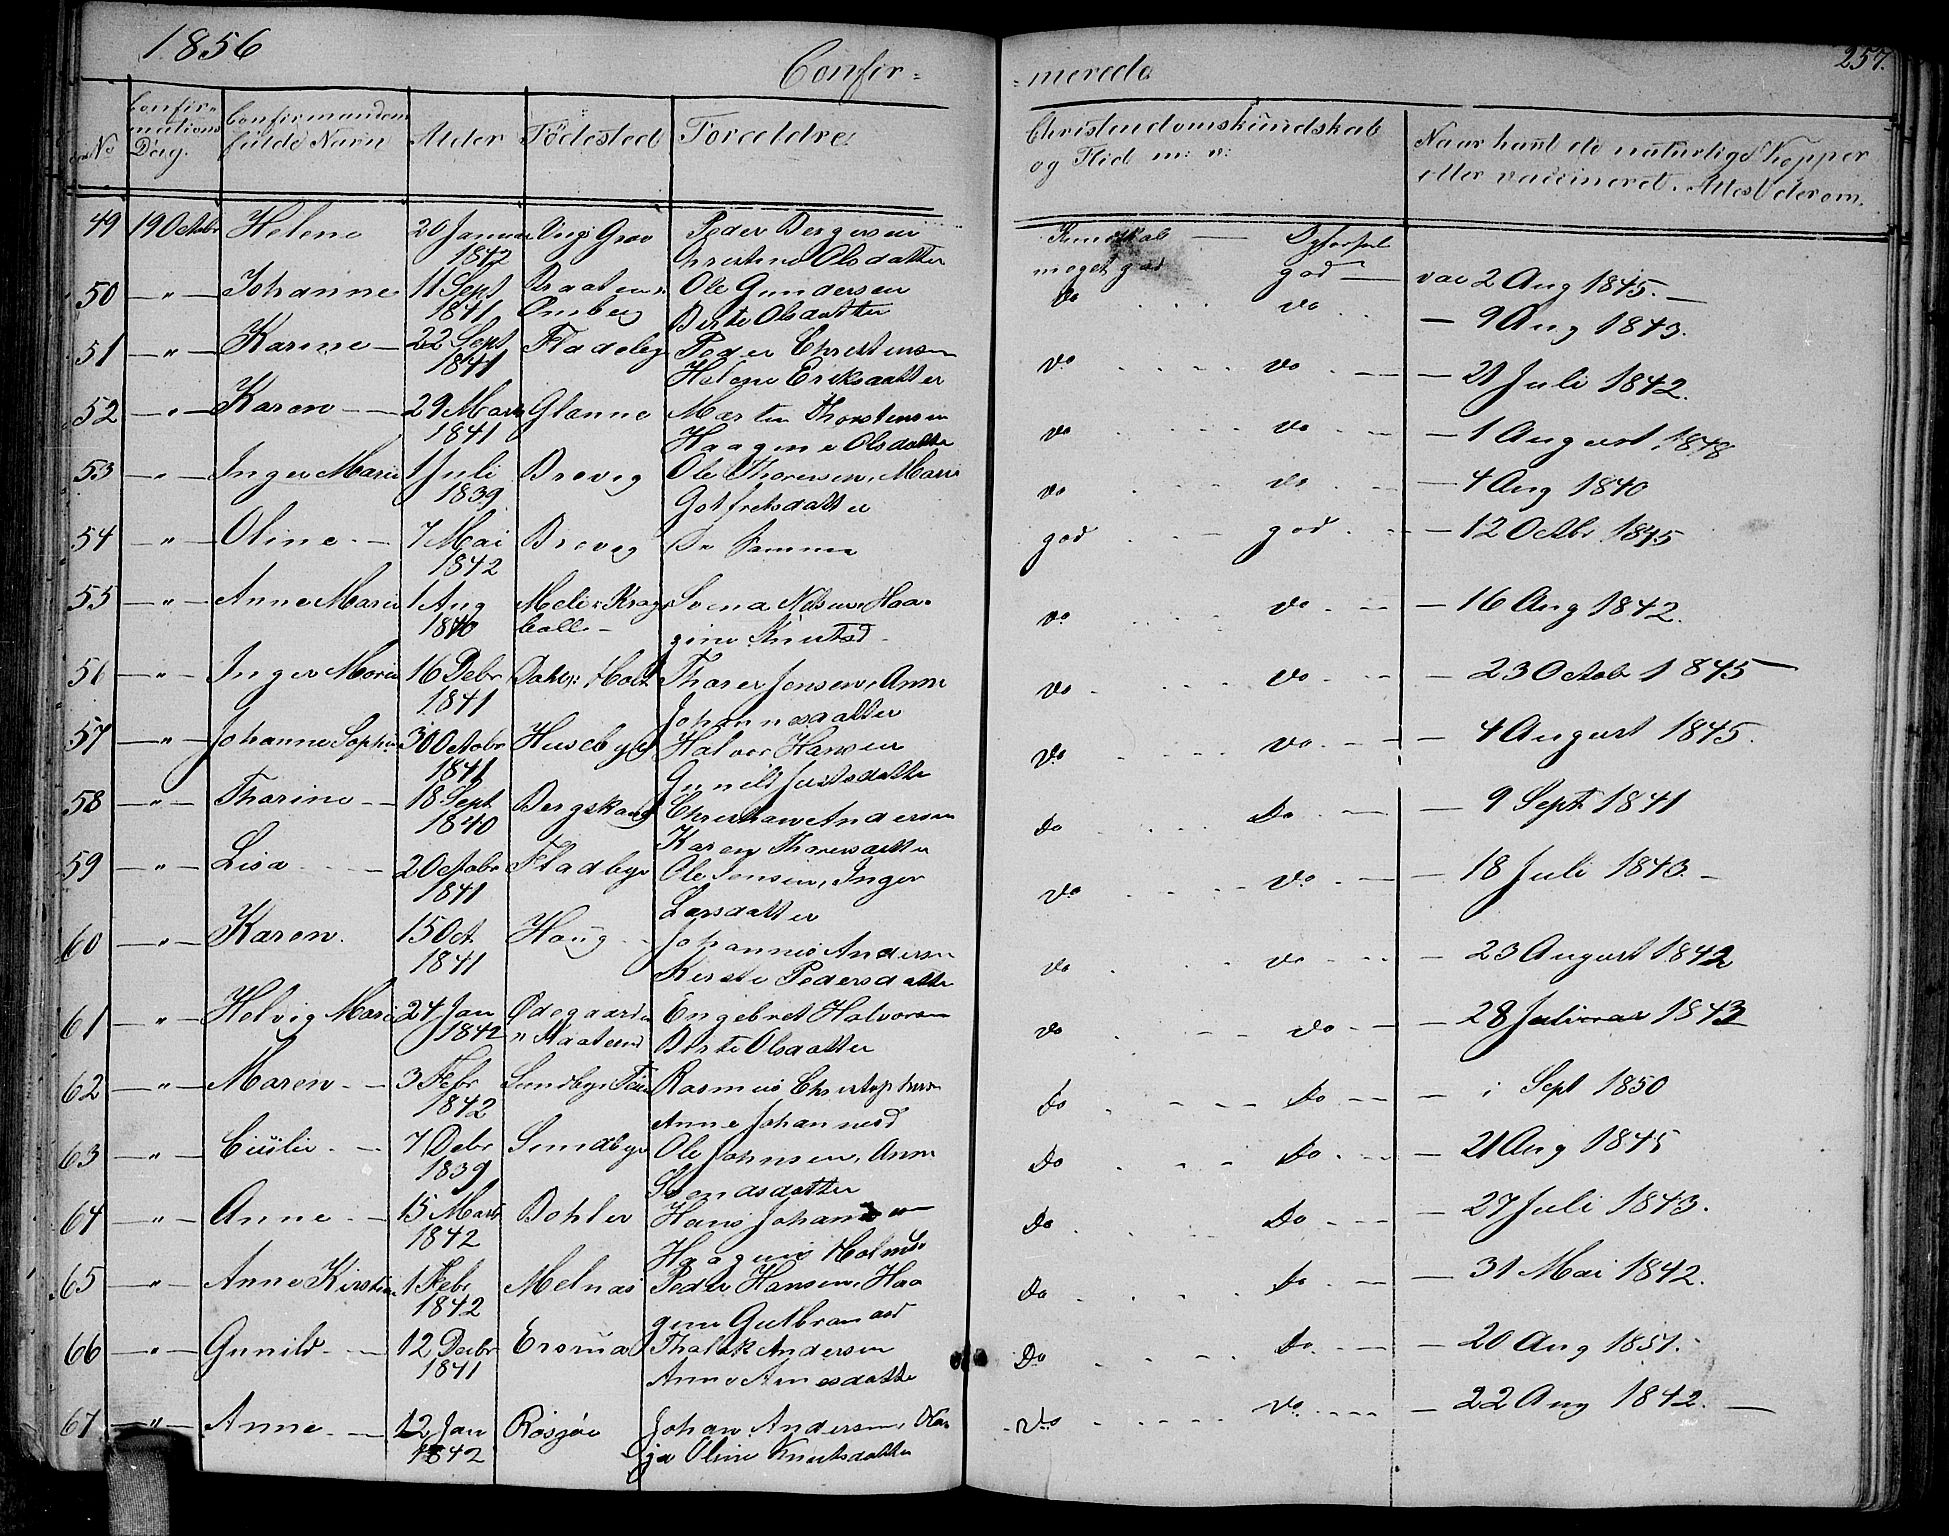 1856
Confir=
=merede
257.
No
Confir=
mations
Dag.
Confirmandens
fulde Navn
Alder
Födested
Forældre
Christendomskundskab
og Flid m: v:
Naar havt de naturlige Kopper
eller vaccineret. Attest derom.
49 19 Octobr Helene 20 Januar Peder Bergersen Kundskab
1842 Christine Olsdatter meget god god vac 2 Aug 1845.
50 — " — Johanne 11 Sept Braaten Ole Gundersen do do — 9 Aug 1843.
1841 Berte Olsdatter
51 — " — Karine 22 Sept Fladeby Peder Christensen do do — 21 Juli 1842.
1841 Helene Eriksdatter
52 — " — Karen 29 Marts Glanne Marten Thorstensen do do — 1 August 1848
1841 Haagine Olsdatter
53 — " — Inger Marie 1 Juli Brevig Ole Thoresen, Marie do do — 4 Aug 1840
1839 Gotfretsdatter
54 — " — Oline 7 Mai Brevig De samme god god — 12 Octbr 1845
1842
55 — " — Anne Marie 1 Aug Haa- do do — 16 Aug 1842.
1840 gine Knutsd
56 — " — Inger Marie 16 Debr Thorer Jensen, Anne do do — 23 Octobr 1845
1841 Johannesdatter
57 — " — Johanne Sophie 30 Octobr Husebye Halvor Hansen do do — 4 August 1845.
1841 Gunild Justsdatter
58 — " — Thorine 18 Sept Bergskaug Christian Andersen Do Do — 9 Sept 1841
1840 Karen Thoresdatter
59 — " — Lisa 2 Octobr Fladbye Ole Jensen, Inger do do — 18 Juli 1843.
1841 Larsdatter
60 — " — Karen. 15 Oct Haug Johannes Andersen do do — 23 August 1842
1841 Kirsti Pedersdatter
61 — " — Helvig Marie 24 Jan Ødegaarden Engebret Halvorsen do do — 28 1843
1842 Berte Olsdatter
62 — " — Maren 3 Febr Sundbye Rasmus Christophersen do Do — i Sept 1850
1842 Anne Johannesd
63 — " — 7 Debr Sundbye Ole Johnsen, Anne Do Do — 21 Aug 1845
1839 Svendsdatter
64 — " — Anne 15 Marts Bohler Hans Johansen Do Do — 27 Juli 1843.
1842 Haagine
65 — " — Anne Kirstine 1 Febr Melnäs Peder Hansen, Haa Do Do — 31 Mai 1842.
1842 gine Gutbransd
66 — " — Gunild 12 Debr Thalak Andersen Do Do — 20 Aug 1851.
1841 Anne Arnesdatter
67 — " — Anne 12 Jan Rösjöe Johan Andersen, Kar do do — 22 Aug 1842.
1842 ja Oline Knutsdatter